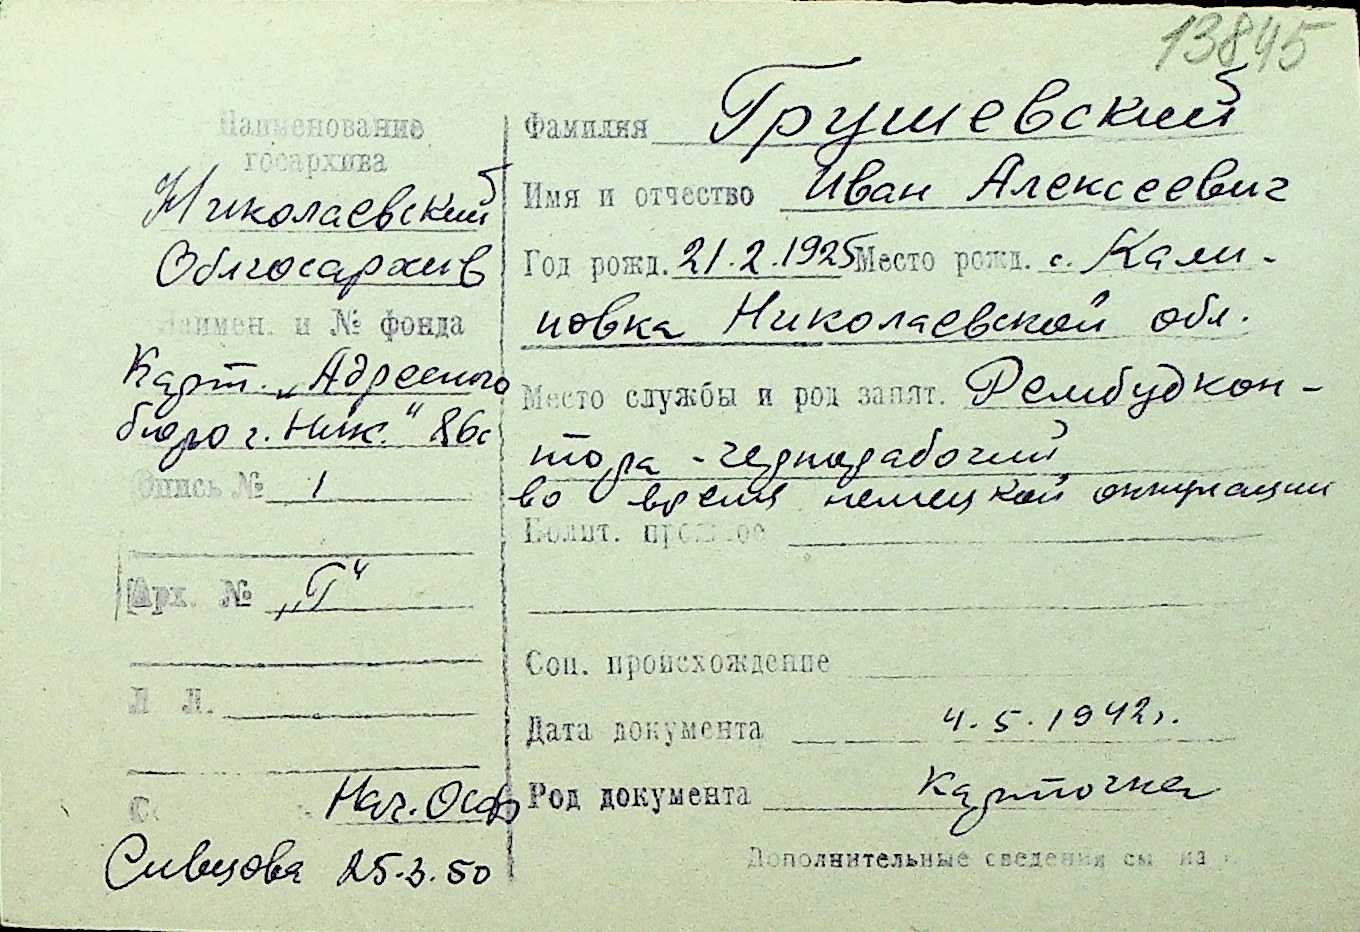 13845
Наименование
госархива
Николаевский
Облгосархив
Наимен. и № фонда
Карт. „Адресного
бюро г. Ник." 86с
Опись № 1
Арх. № „Г"
Л Л.
Нач. Осф
Сивцова 25.3.50
Фамилия Грушевский
Имя и отчество Иван Алексеевич
Год рожд. 21.2.1925 Место рожд. с. Кали-
новка Николаевской обл.
Место службы и род занят. Рембудкон-
тора - чернорабочий
во время немецкой оккупации
Полит. прошлое
Соц. происхождение
Дата документа 4.5.1942г.
Род документа карточка
Дополнительные сведения см на